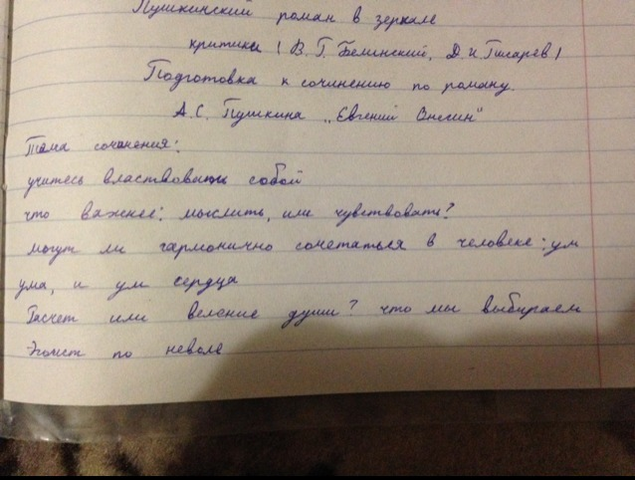 Пушкинский роман в зеркале
критики ( В. Г. Белинский, Д. И Писарев )
Подготовка к сочинению по роману
А.С. Пушкина „Евгений Онегин"
Тема сочинения:
учитесь властвовать собой
что важнее: мыслить, или чувствовать?
могут ли гармонично сочетаться в человеке: ум
ума, и ум сердца
Расчет или веление души? что мы выбираем
Эгоист по неволе